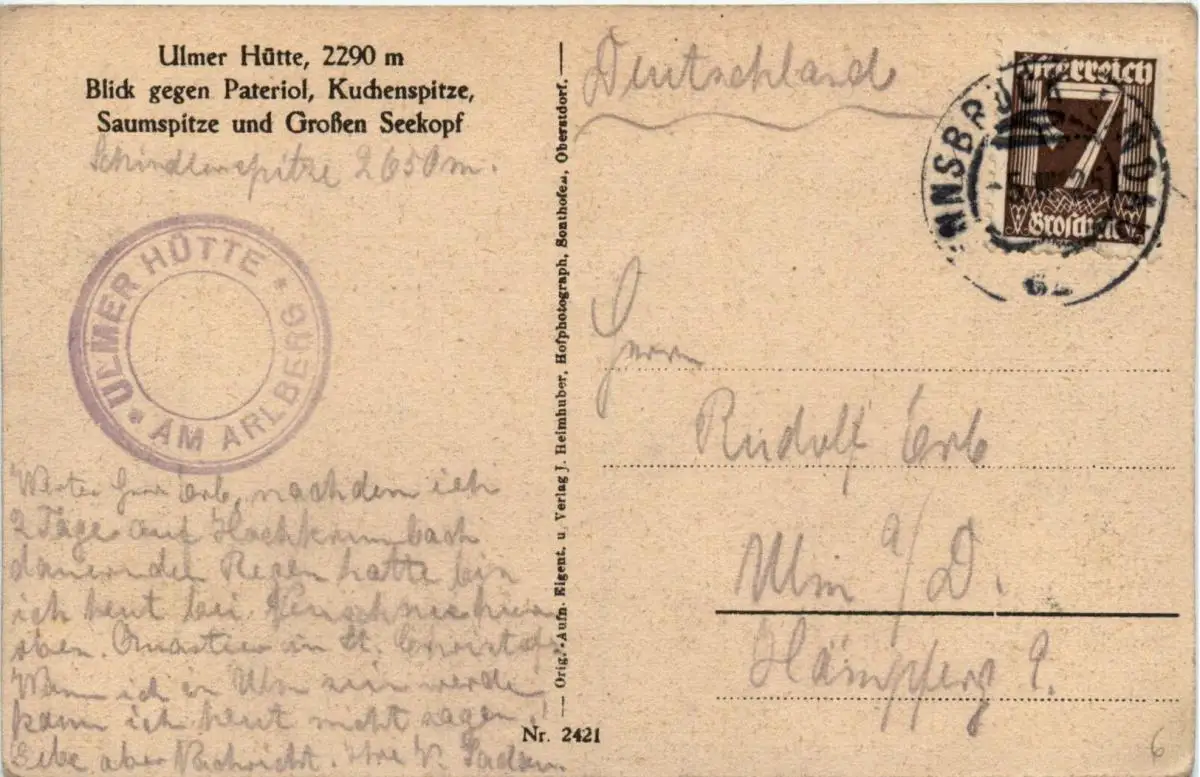 Ulmer Hütte, 2290 m
Blick gegen Pateriol, Kuchenspitze,
Saumspitze und Großen Seekopf
Schindlerspitze 2650 m.
ULMER HÜTTE * AM ARLBERG *
Werter Herr Erb, nachdem ich
2 Tage auf Hochkrumbach
dauernden Regen hatte bin
ich heut bei Neuschnee hier
oben. Quartier in St. Christof
Wann ich in Ulm sein werde
kann ich heut nicht sagen!
Gebe aber Nachricht. Ihre
Orig.-Aufn. Eigent. u. Verlag J. Heimhuber, Hofphotograph, Sonthofen, Oberstdorf.
Nr. 2421
Deutschland
Österreich
7
Groschen
INNSBRUCK
Herrn
Rudolf Erb
Ulm a/D.
6